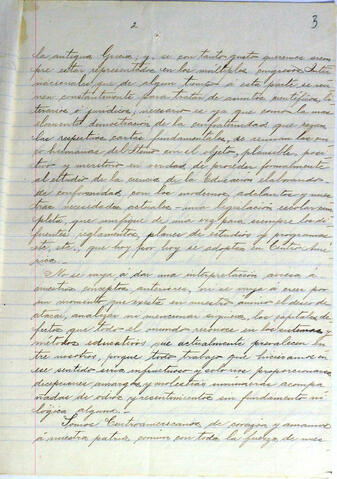 2
3
la antigua Grecia; y, si con tanto gusto queremos siem-
pre estar representados en los múltiples congresos Inter-
nacionales que de algun tiempo á esta parte se reu-
nen constantemente para tratar de asuntos científicos, li-
terarios ó jurídicos, necesario es que como la mas
elocuente demostración de la conformidad que
las respectivas cartas fundamentales, se reunan las cin-
co hermanas del Istmo con el objeto, plausible, positi-
vo y meritorio en verdad, de proceder formalmente
al estudio de la ciencia de la Educación elaborando
de conformidad con los modernos adelantos y nues-
tras necesidades actuales una legislación escolar com-
pleta, que unifique de una vez para siempre los di-
ferentes reglamentos, planes de estudios y programas
etc. etc., que hoy por hoy se adoptan en Centro Amé-
rica.
No se vaya á dar una interpretación aviesa á
nuestros conceptos anteriores, ni se vaya á creer por
un momento que exista en nuestro ánimo el deseo de
atacar, analizar ni mencionar siquiera, los capitales de-
fectos que todo el mundo reconoce en los sistemas y
métodos educativos que actualmente prevalecen en-
tre nosotros, porque todo trabajo que hiciéramos en
ese sentido sería infructuoso y solo nos proporcionaría
decepciones amargas y molestias innumeradas acompa-
ñadas de odios y resentimientos sin fundamento ni
lógica alguna.
Somos Centroamericanos de corazón y amamos
á nuestra patria comun con toda la fuerza de nues-